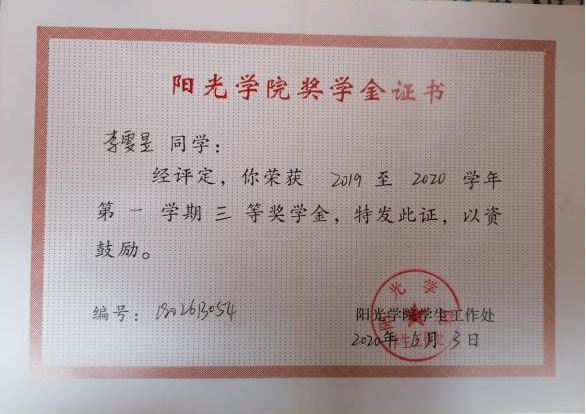 阳光学院奖学金证书
李雯昱 同学：
经评定，你荣获 2019 至 2020 学年
第 一 学期 三 等奖学金，特发此证，以资
鼓励。
编号：1802613054
阳光学院学生工作处
2020年6月3日
阳光学院
学生工作处